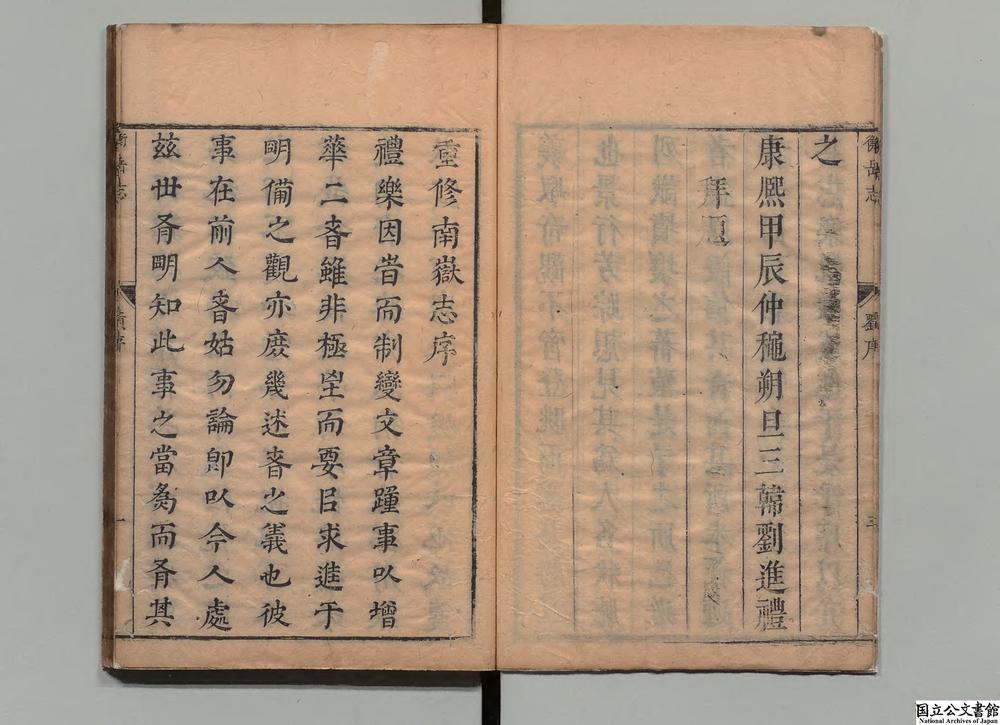 衡岳志
劉序
三
之
康熙甲辰仲龝朔旦三韓劉進禮
拜題
重修南嶽志序
禮樂因旹而制變文章踵事以增
華二者雖非極至而要㠯求進于
眀備之觀亦庶幾述者之義也彼
事在前人者姑勿論卽以今人處
兹世有眀知此事之當為而有其
衡岳志
序
一
国立公文書館
National Archives of Japan